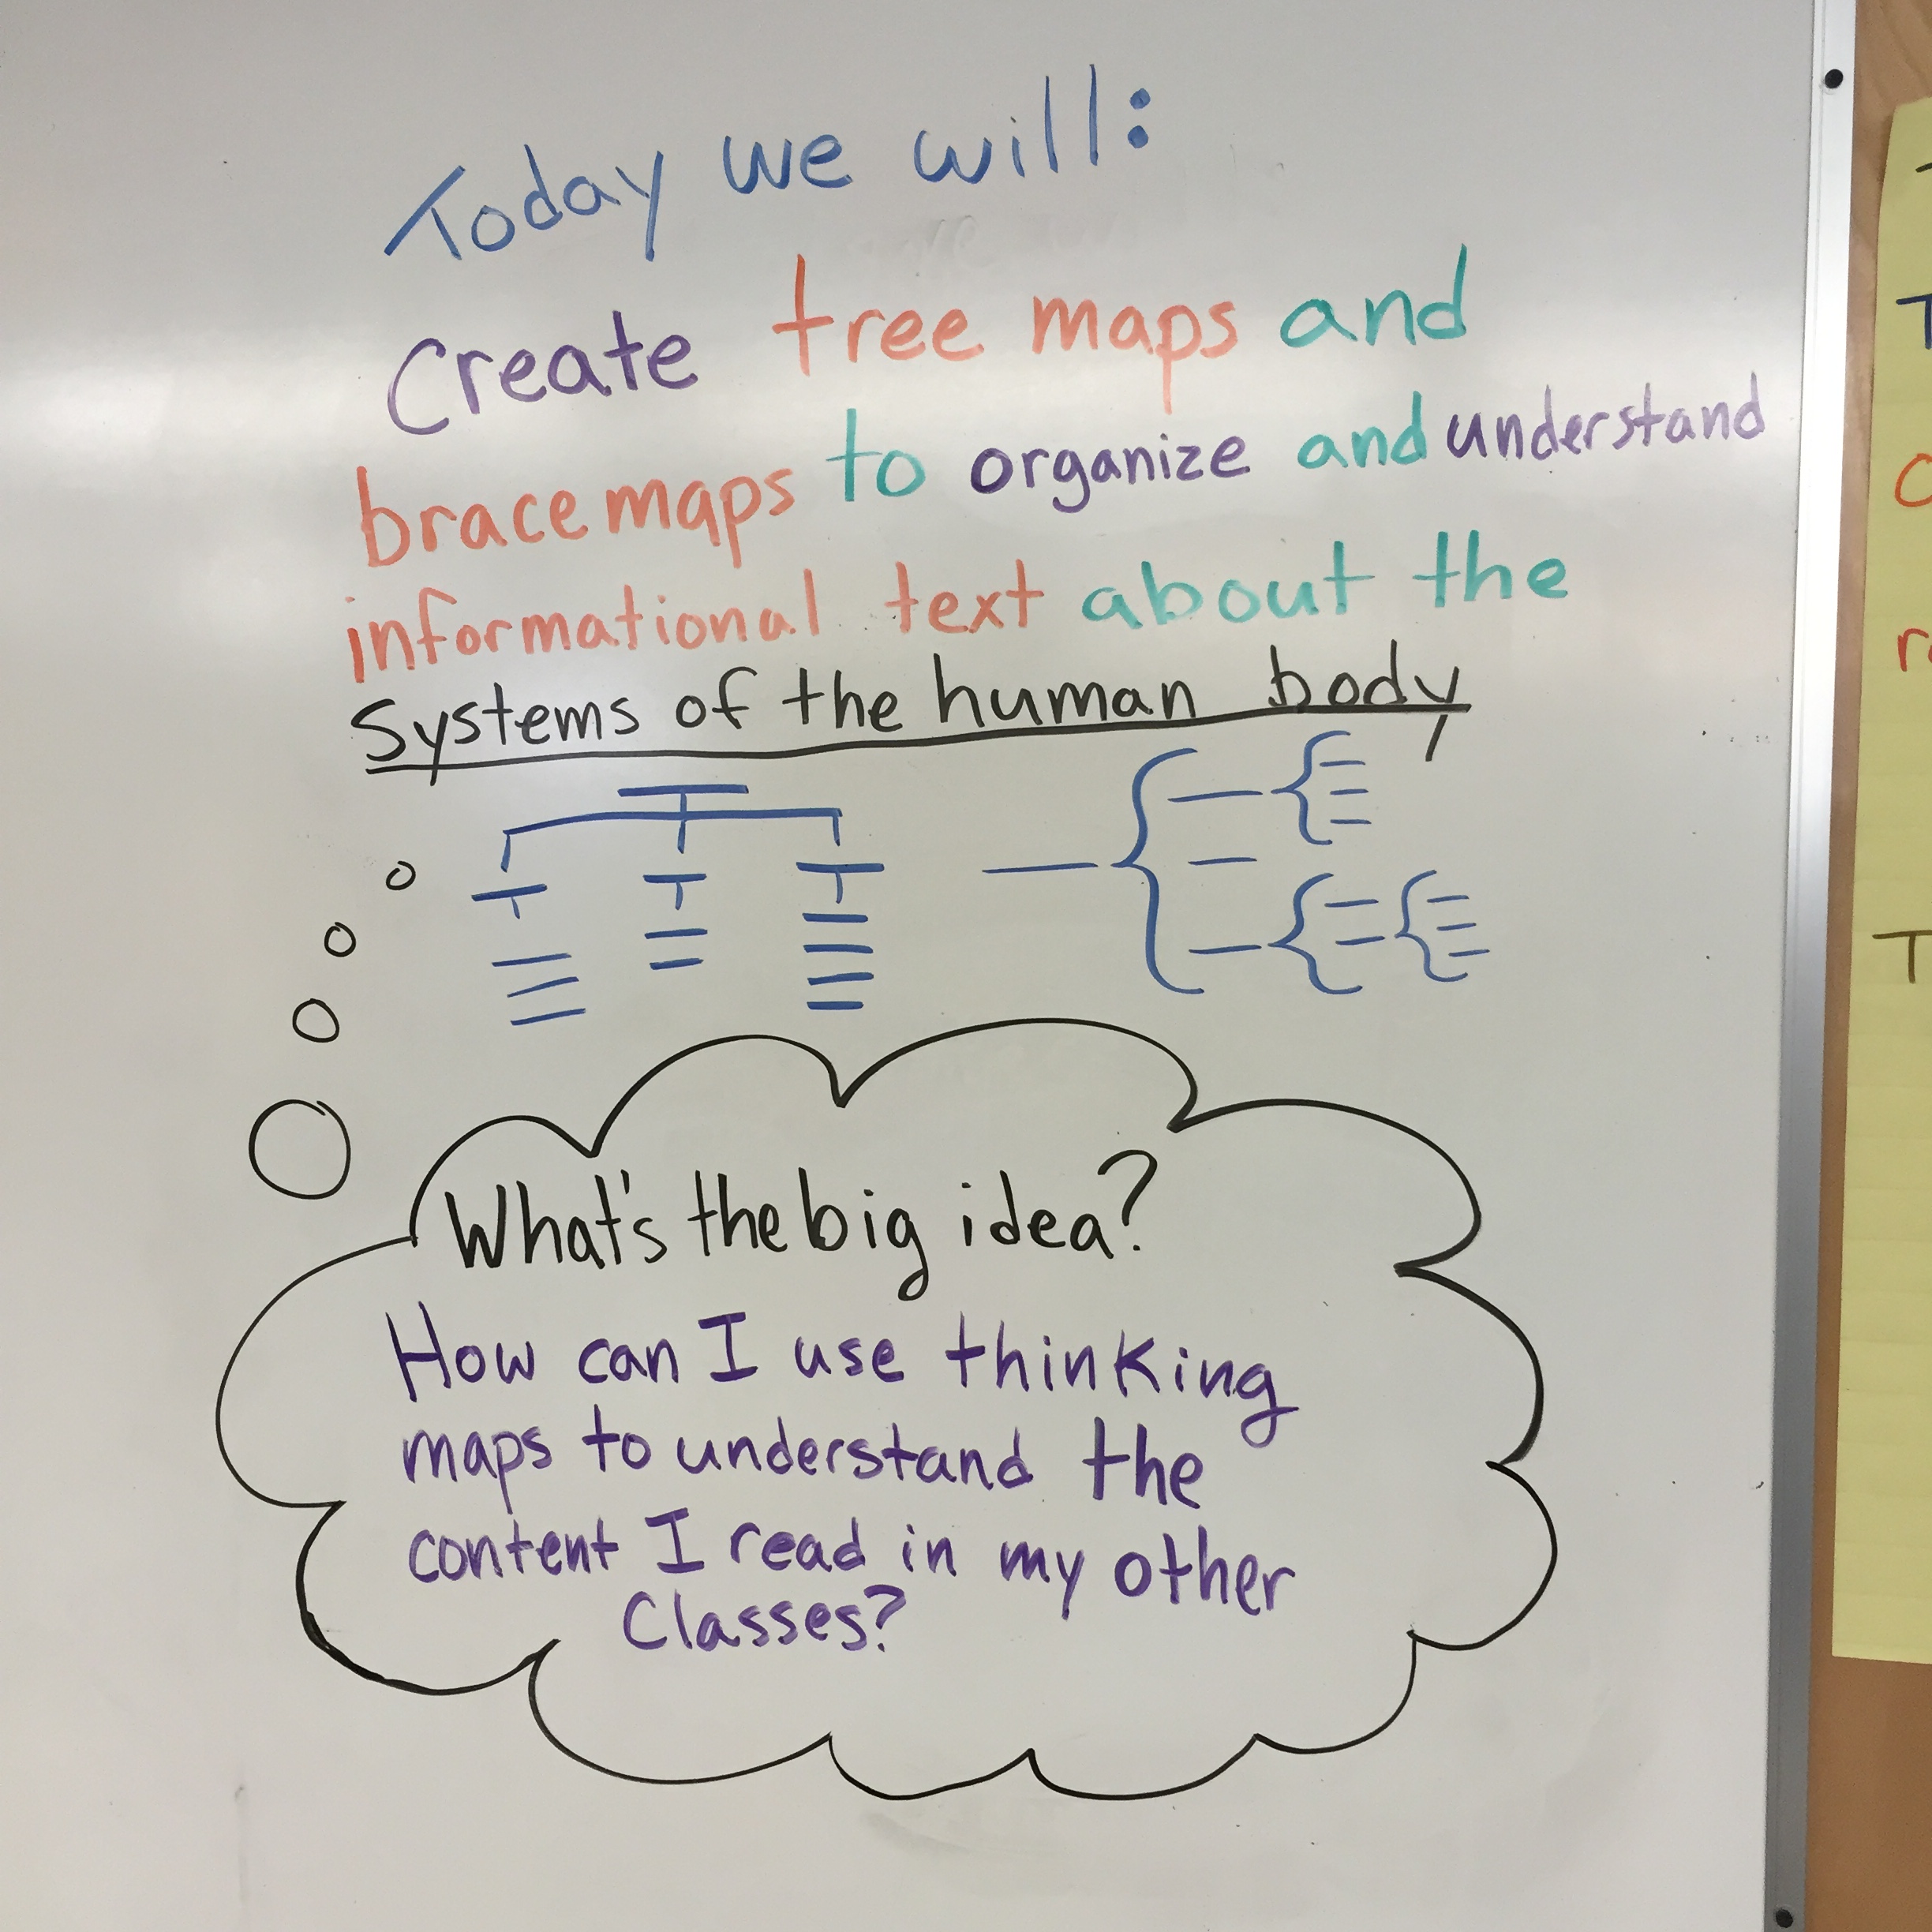 Today we will:
Create tree maps and
brace maps to organize and understand
informational text about the
Systems of the human body
What's the big idea?
How can I use thinking
maps to understand the
content I read in my other
Classes?